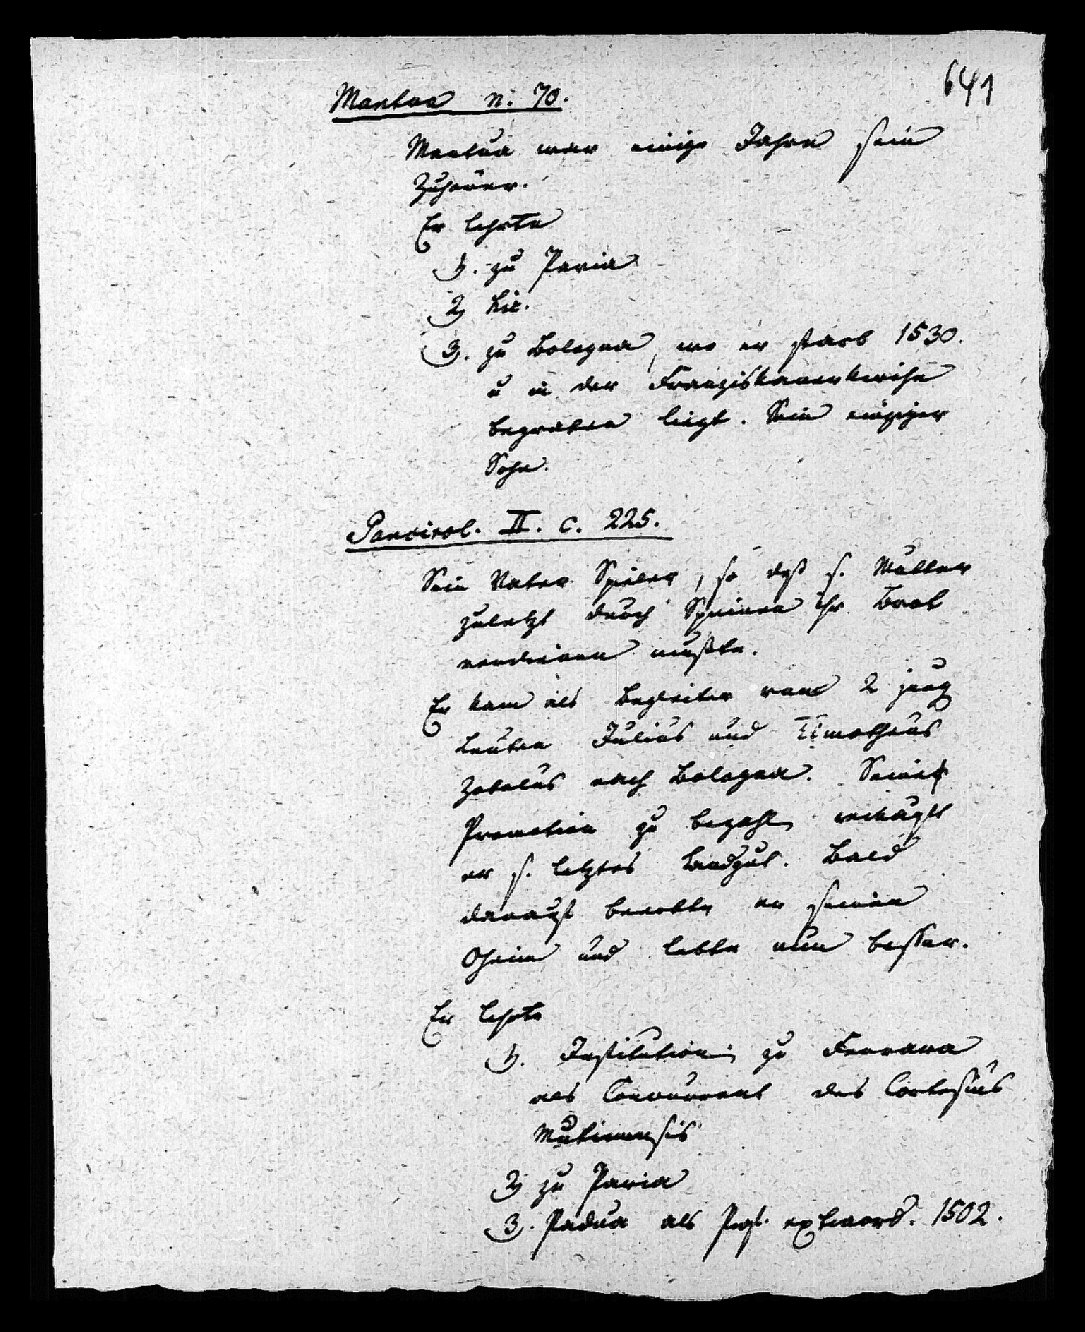 641
Mantua n. 70.
Mantua war einige Jahre sein
Zuhörer.
Er lehrte
1. zu Pavia
2) hic.
3. zu Bologna, wo er starb 1530.
u in der Franziskanerkirche
begraben liegt. Sein einziger
Sohn.
Pancirol. II. c. 225.
Sein Vater Spieler, so daß s. Mutter
zuletzt durch Spinnen ihr Brot
verdienen mußte.
Er kam als Begleiter von 2 jung
Leuten Julius und Timotheus
Zobolus nach Bologna. Seine
Promotion zu bezahl verkauft
er s. letztes Landgut. Bald
darauf beerbte er seinen
Oheim und lebte nun besser.
Er lehrte
1. Institution zu Ferrara
als Concurrent des Cortesius
Mutinensis
2) zu Pavia
3. Padua als Prof. extraord. 1502.